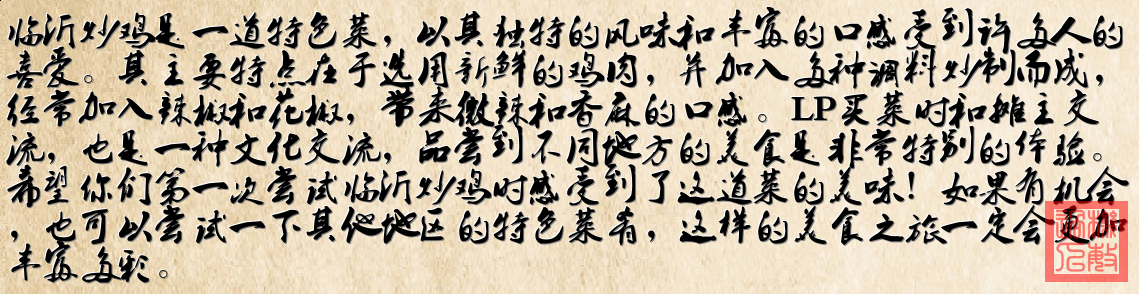 临沂炒鸡是一道特色菜，以其独特的风味和丰富的口感受到许多人的
喜爱。其主要特点在于选用新鲜的鸡肉，并加入多种调料炒制而成，
经常加入辣椒和花椒，带来微辣和香麻的口感。LP买菜时和摊主交
流，也是一种文化交流，品尝到不同地方的美食是非常特别的体验。
希望你们第一次尝试临沂炒鸡时感受到了这道菜的美味！如果有机会
，也可以尝试一下其他地区的特色菜肴，这样的美食之旅一定会更加
丰富多彩。